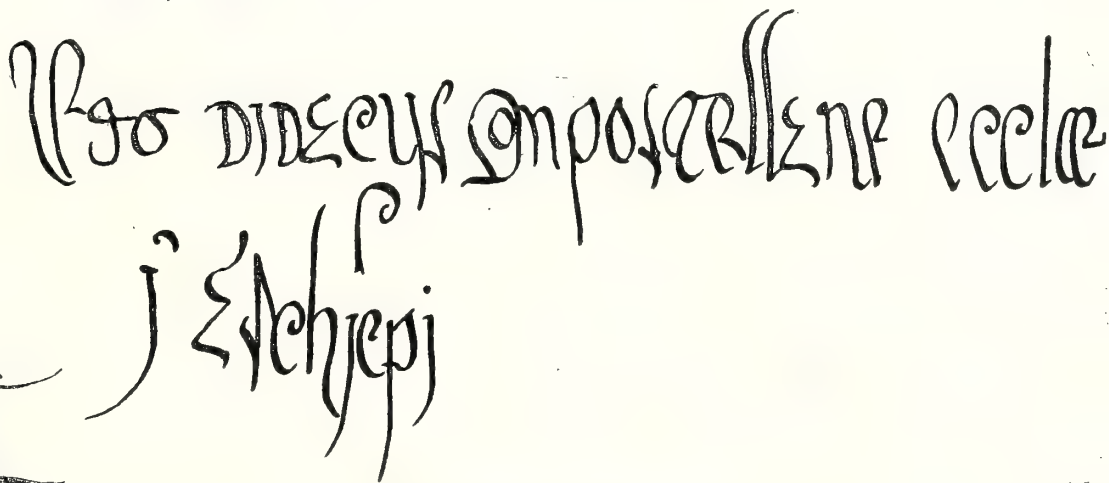 Ego Didacus Compostellane eccle
j archiepi